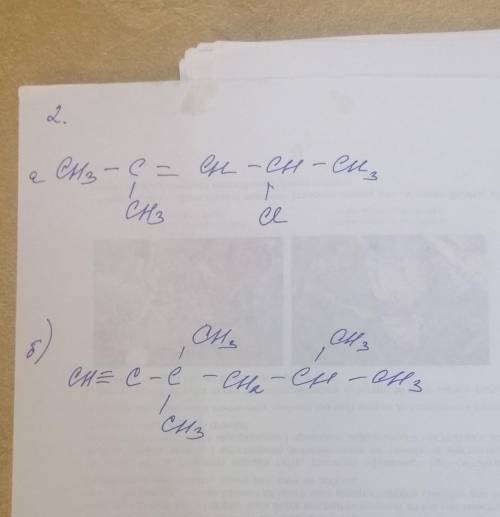 2.
а CH3 - C = CH - CH - CH3
CH3 Cl
б)
CH3 CH3
CH ≡ C - C - CH2 - CH - CH3
CH3